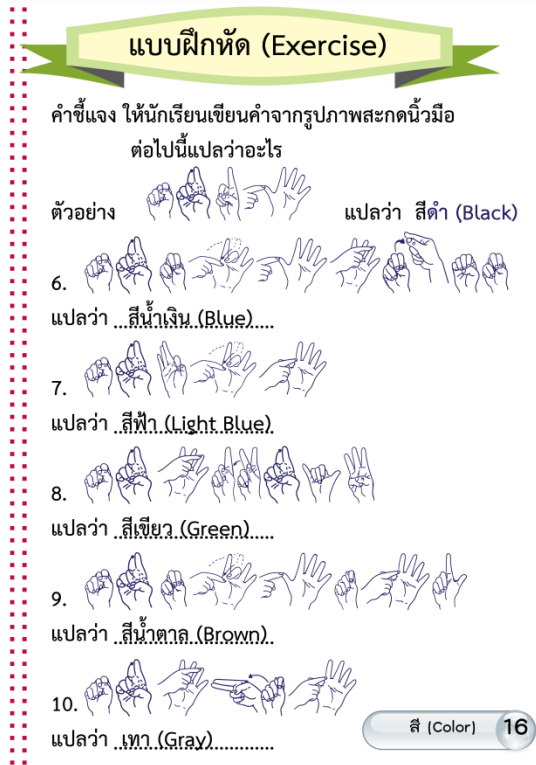 แบบฝึกหัด (Exercise)
คำชี้แจง ให้นักเรียนเขียนคำจากรูปภาพสะกดนิ้วมือ
ต่อไปนี้แปลว่าอะไร
ตัวอย่าง แปลว่า สีดำ (Black)
6.
แปลว่า ...สีน้ำเงิน (Blue)....
7.
แปลว่า ..สีฟ้า (Light Blue)
8.
แปลว่า ..สีเขียว (Green)....
9.
แปลว่า ..สีน้ำตาล (Brown)..
10.
แปลว่า ..เทา (Gray)............
สี (Color) 16